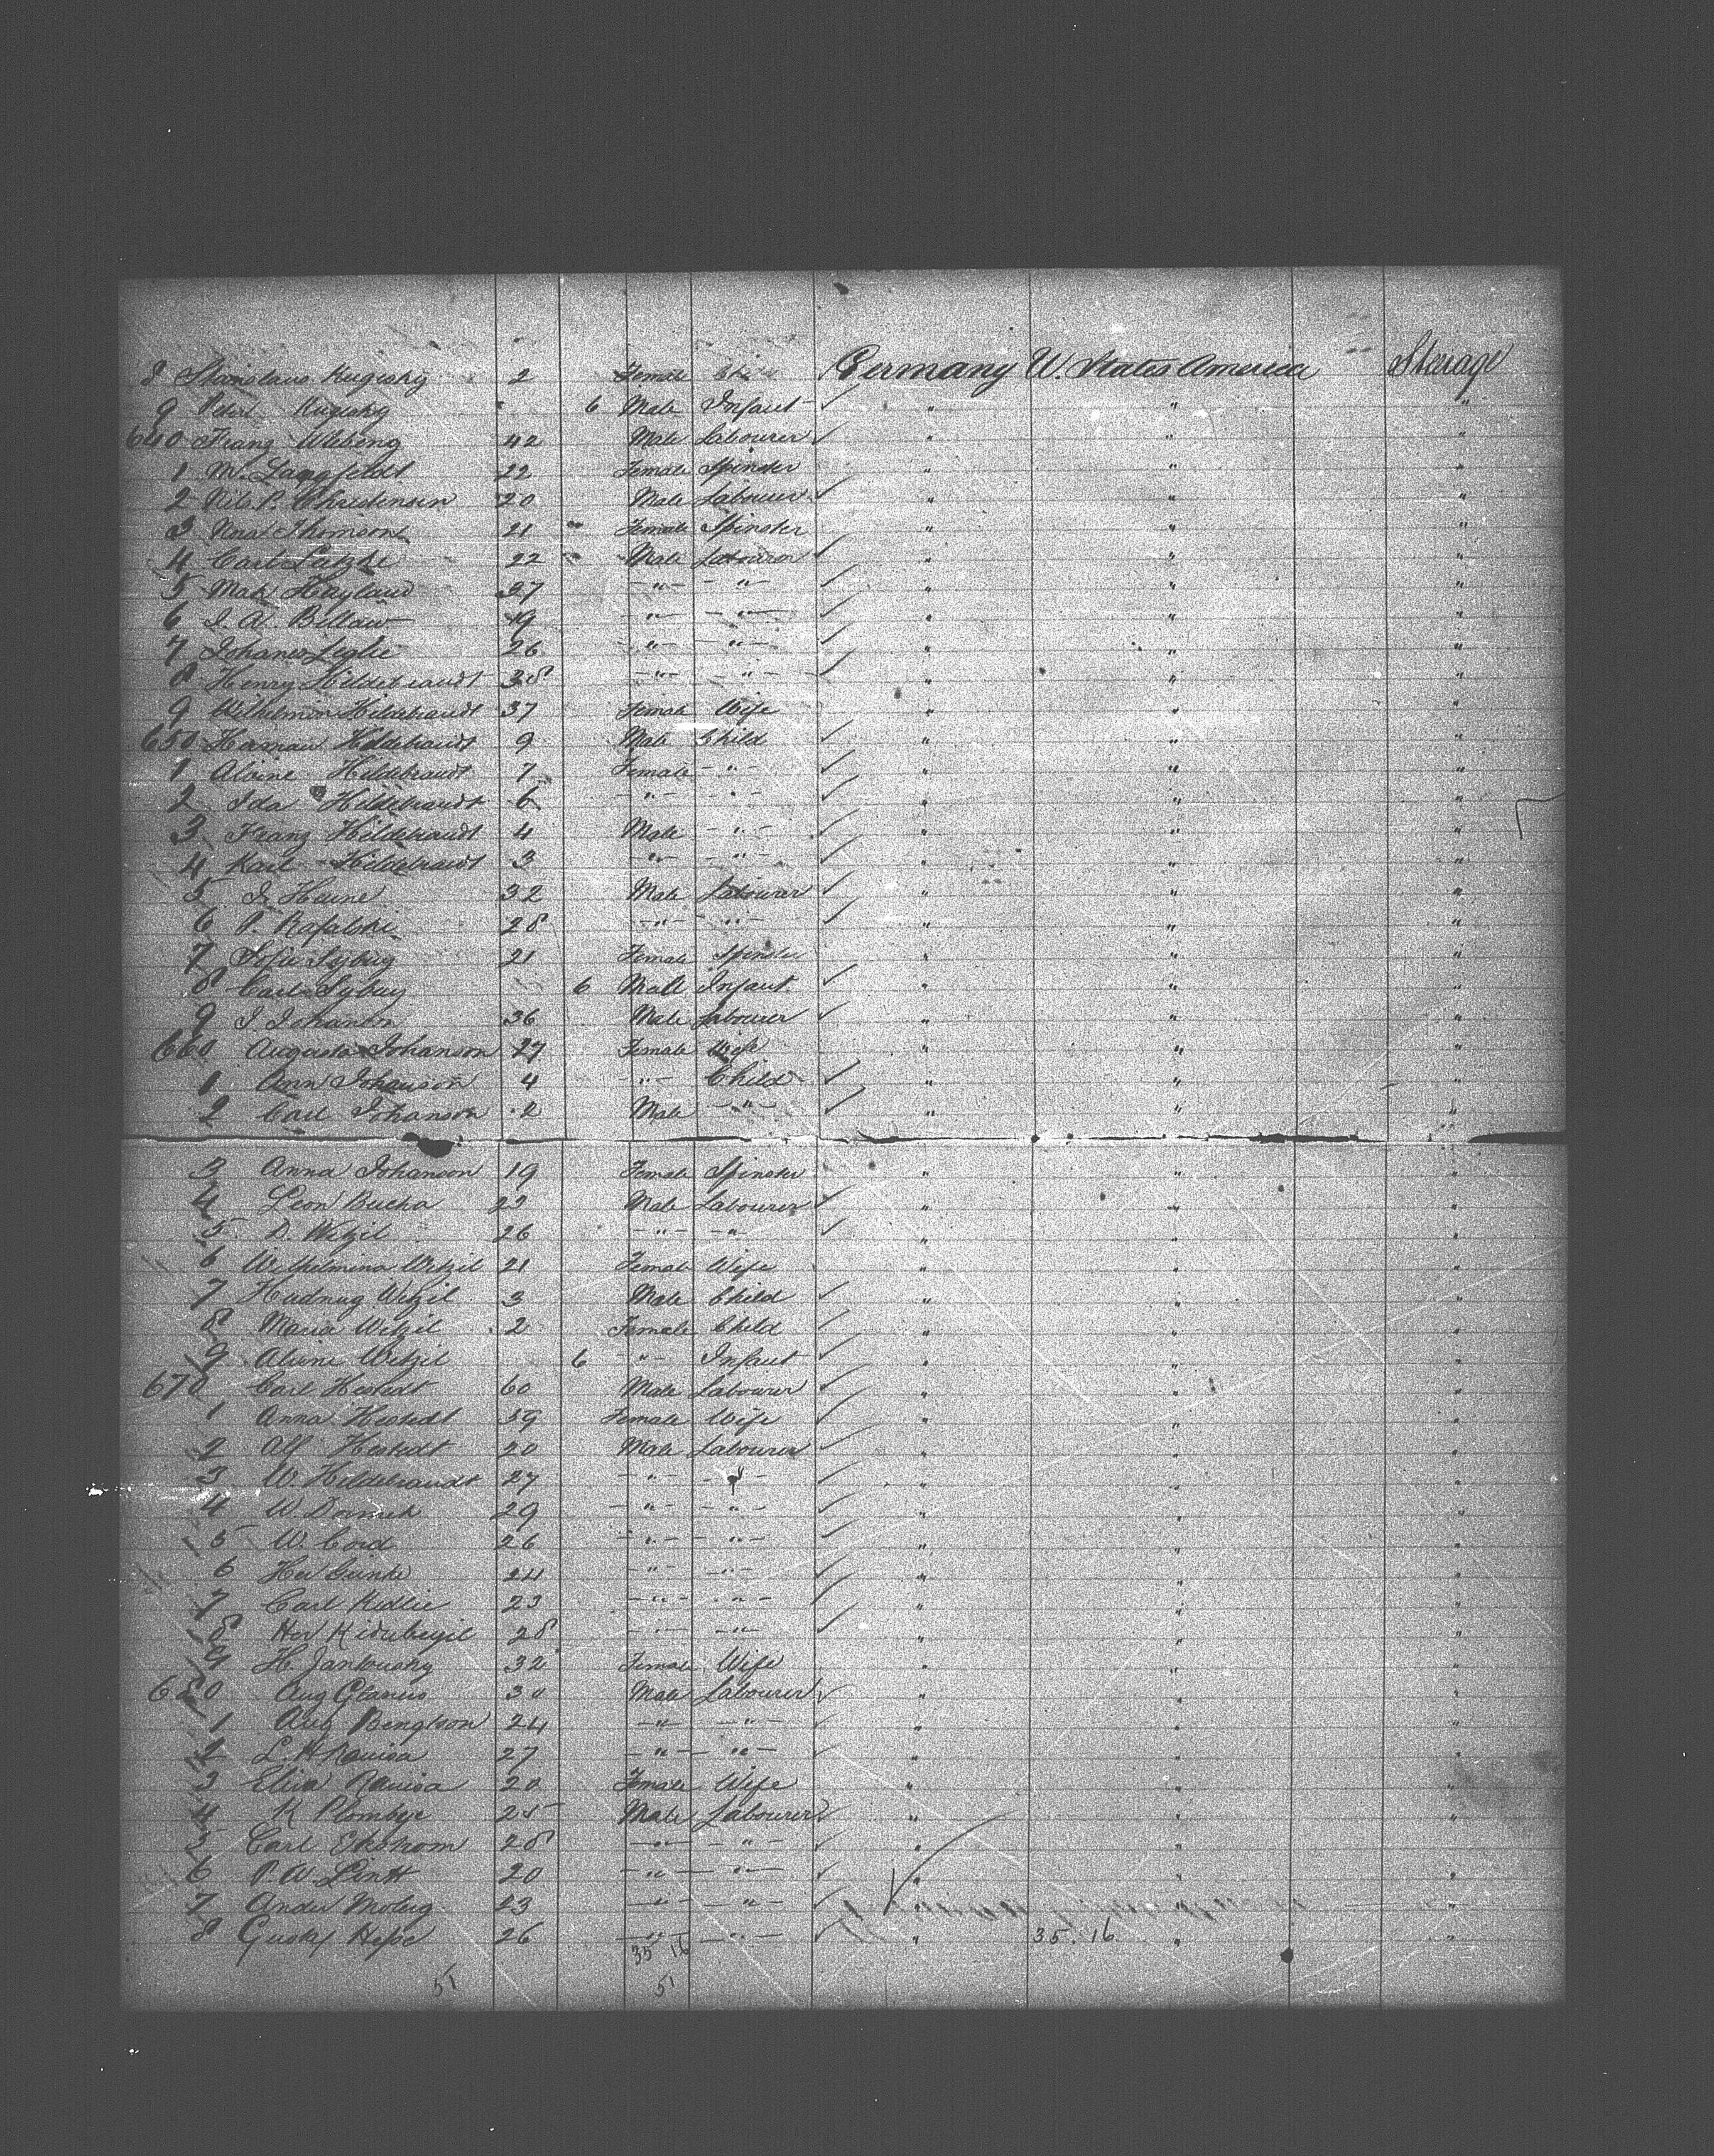 8 Stanislaus Rugisky 2 Female Germany U. States America Stearage
9 Peter Rugisky 6 Male Infant " " "
640 Franz Webeng 42 Male Labourer " " "
1 M. Langfeldt 22 Female Spinster " " "
2 Nils P. Christensen 20 Male Labourer " " "
3 Thomson 21 Female Spinster " " "
4 Carl Latzke 22 Male Labourer " " "
5 Hayland 27 " " " " "
6 J. A. Billaw 19 " " " " "
7 Johanes Leglie 26 " " " " "
8 Henry Hildebrandt 38 " " " " "
9 Wilhelmin Hildebrandt 37 Female Wife " " "
650 Herman Hildebrandt 9 Male Child " " "
1 Alvine Hildebrandt 7 Female " " " "
2 Ida Hildebrandt 6 " " " " "
3 Franz Hildebrandt 4 Male " " " "
4 Karl Hildebrandt 3 " " " " "
5 J. Heine 32 Male Labourer " " "
6 P. Rafalski 28 " " " " "
7 Sybuy 21 Female Spinster " " "
8 Carl Sybuy 6 Male Infant " " "
9 J. Johanson 36 Male Labourer " " "
660 Augusta Johanson 27 Female Wife " " "
1 Ann Johanson 4 " Child " " "
2 Carl Johanson 2 Male " " " "
3 Anna Johanson 19 Female Spinster " " "
4 Leon Bucha 23 Male Labourer " " "
5 D. Witzil 26 " " " " "
6 Wilhelmina Witzil 21 Female Wife " " "
7 Witzil 3 Male Child " " "
8 Maria Witzil 2 Female Child " " "
9 Alvine Witzil 6 " Infant " " "
670 Carl Hestedt 60 Male Labourer " " "
1 Anna Hestedt 59 Female Wife " " "
2 Alf Hestedt 20 Male Labourer " " "
3 W. Hildebrandt 27 " " " " "
4 W. 29 " " " " "
5 W. Cord 26 " " " " "
6 Her 24 " " " " "
7 Carl Kidlie 23 " " " " "
8 Her 28 " " " " "
9 H. Jankousky 32 Female Wife " " "
680 Aug Glaneis 30 Male Labourer " " "
1 Aug Bengtson 24 " " " " "
2 L. H. Rauisa 27 " " " " "
3 Elisa Rauisa 20 Female Wife " " "
4 K Plombye 25 Male Labourer " " "
5 Carl Ekstrom 28 " " " " "
6 P. W. Lintt 20 " " " " "
7 Ander Moleig 23 " " " " "
8 Gustaf 26 " " " 35. 16 " "
35 16
51 51